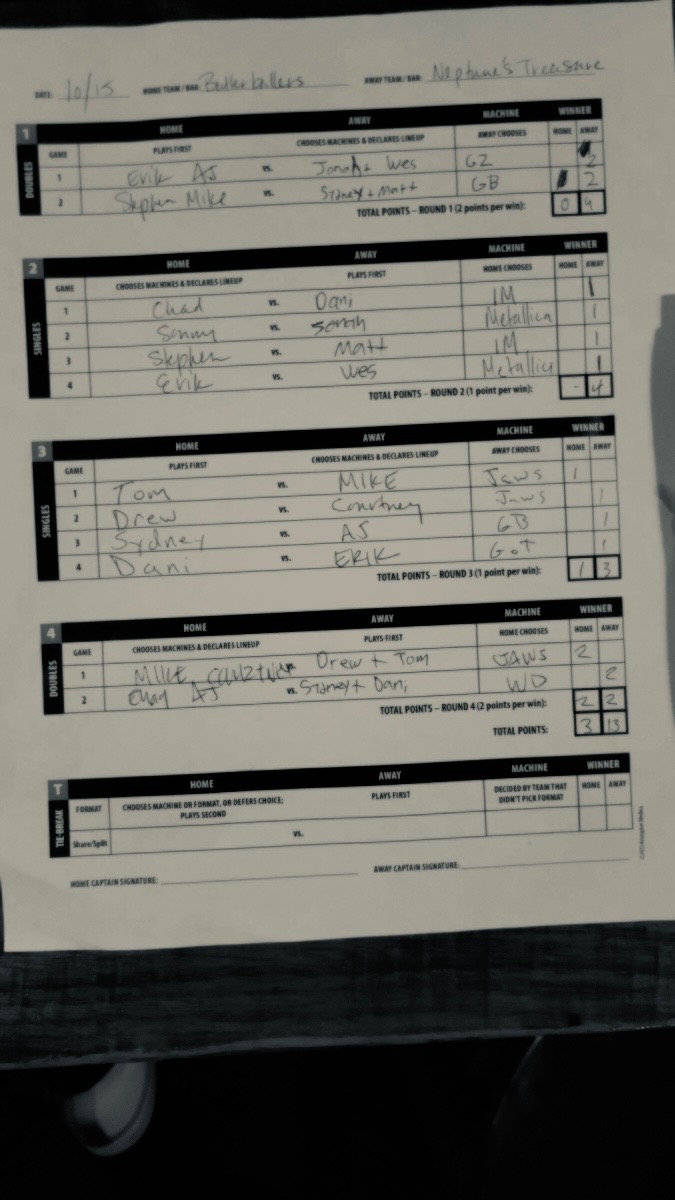 DATE: 10/15 HOME TEAM / BAR: Butterballers AWAY TEAM / BAR: Neptune's Treasure
1 HOME AWAY MACHINE WINNER
DOUBLES GAME PLAYS FIRST CHOOSES MACHINES & DECLARES LINEUP AWAY CHOOSES HOME AWAY
1 Erik AJ vs. Jonah + Wes GZ 2
2 Stephen Mike vs. Sydney + Matt GB 2
TOTAL POINTS – ROUND 1 (2 points per win): 0 4
2 HOME AWAY MACHINE WINNER
SINGLES GAME CHOOSES MACHINES & DECLARES LINEUP PLAYS FIRST HOME CHOOSES HOME AWAY
1 Chad vs. Dani IM 1
2 Sonny vs. Sarah Metallica 1
3 Stephen vs. Matt IM 1
4 Erik vs. Wes Metallica 1
TOTAL POINTS – ROUND 2 (1 point per win): - 4
3 HOME AWAY MACHINE WINNER
SINGLES GAME PLAYS FIRST CHOOSES MACHINES & DECLARES LINEUP AWAY CHOOSES HOME AWAY
1 Tom vs. MIKE Jaws 1
2 Drew vs. Courtney Jaws 1
3 Sydney vs. AJ GB 1
4 Dani vs. ERIK GoT 1
TOTAL POINTS – ROUND 3 (1 point per win): 1 3
4 HOME AWAY MACHINE WINNER
DOUBLES GAME CHOOSES MACHINES & DECLARES LINEUP PLAYS FIRST HOME CHOOSES HOME AWAY
1 MIKE, COURTNEY vs. Drew + Tom JAWS 2
2 Chad AJ vs. Sydney + Dani WD 2
TOTAL POINTS – ROUND 4 (2 points per win): 2 2
TOTAL POINTS: 3 13
T HOME AWAY MACHINE WINNER
TIE-BREAK FORMAT CHOOSES MACHINE OR FORMAT, OR DEFERS CHOICE; PLAYS SECOND PLAYS FIRST DECIDED BY TEAM THAT DIDN'T PICK FORMAT HOME AWAY
Share/Split vs.
HOME CAPTAIN SIGNATURE: AWAY CAPTAIN SIGNATURE: